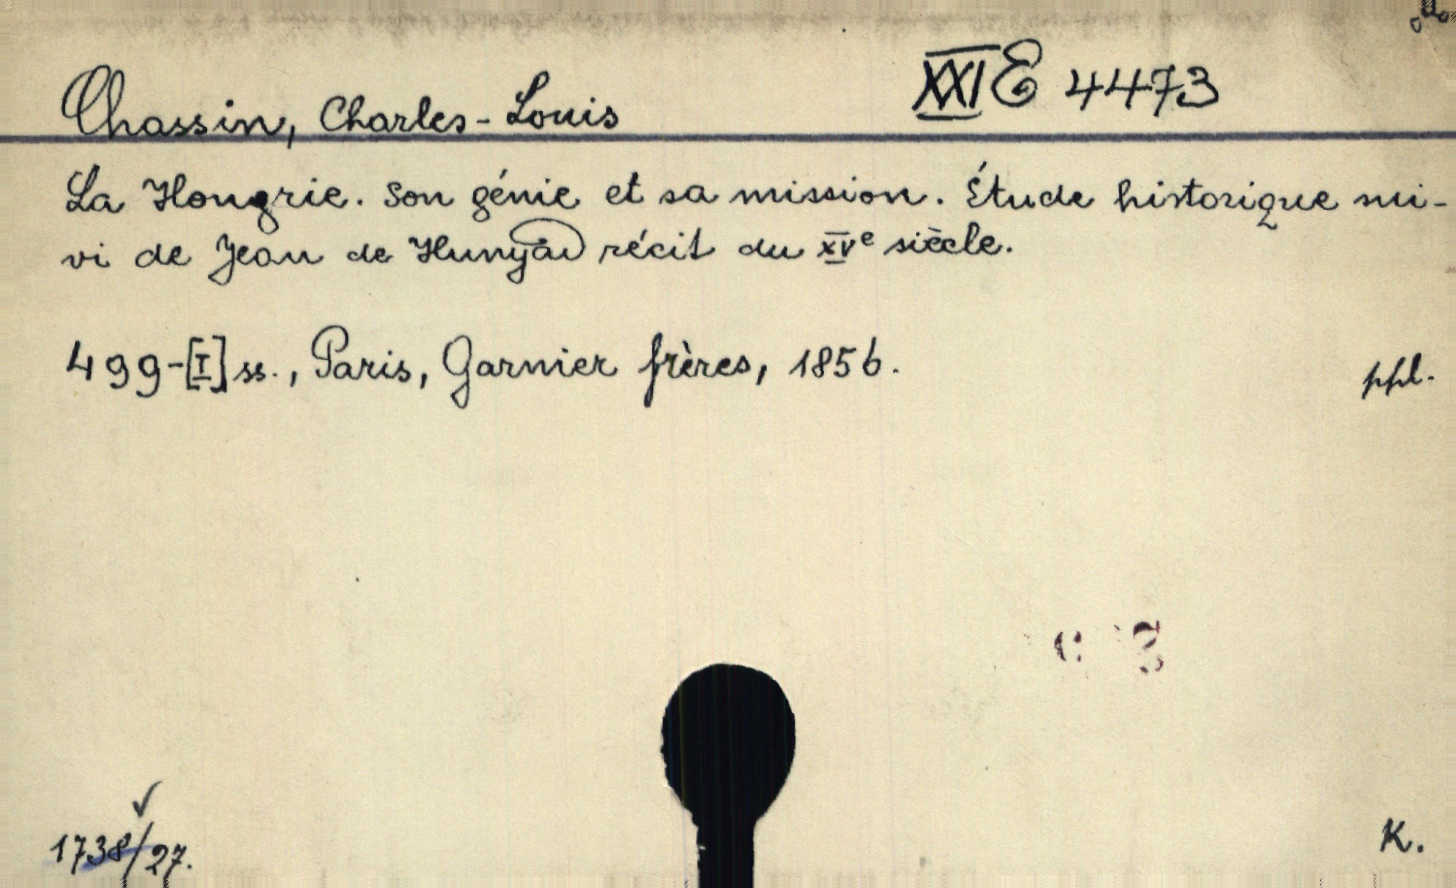 XXI E 4473
Chassin, Charles-Louis
La Hongrie. Son génie et sa mission. Étude historique sui-
vi de Jean de Hunyad récit du XVe siècle.
499-[I] ss., Paris, Garnier frères, 1856.
ppl.
1738/27.
K.